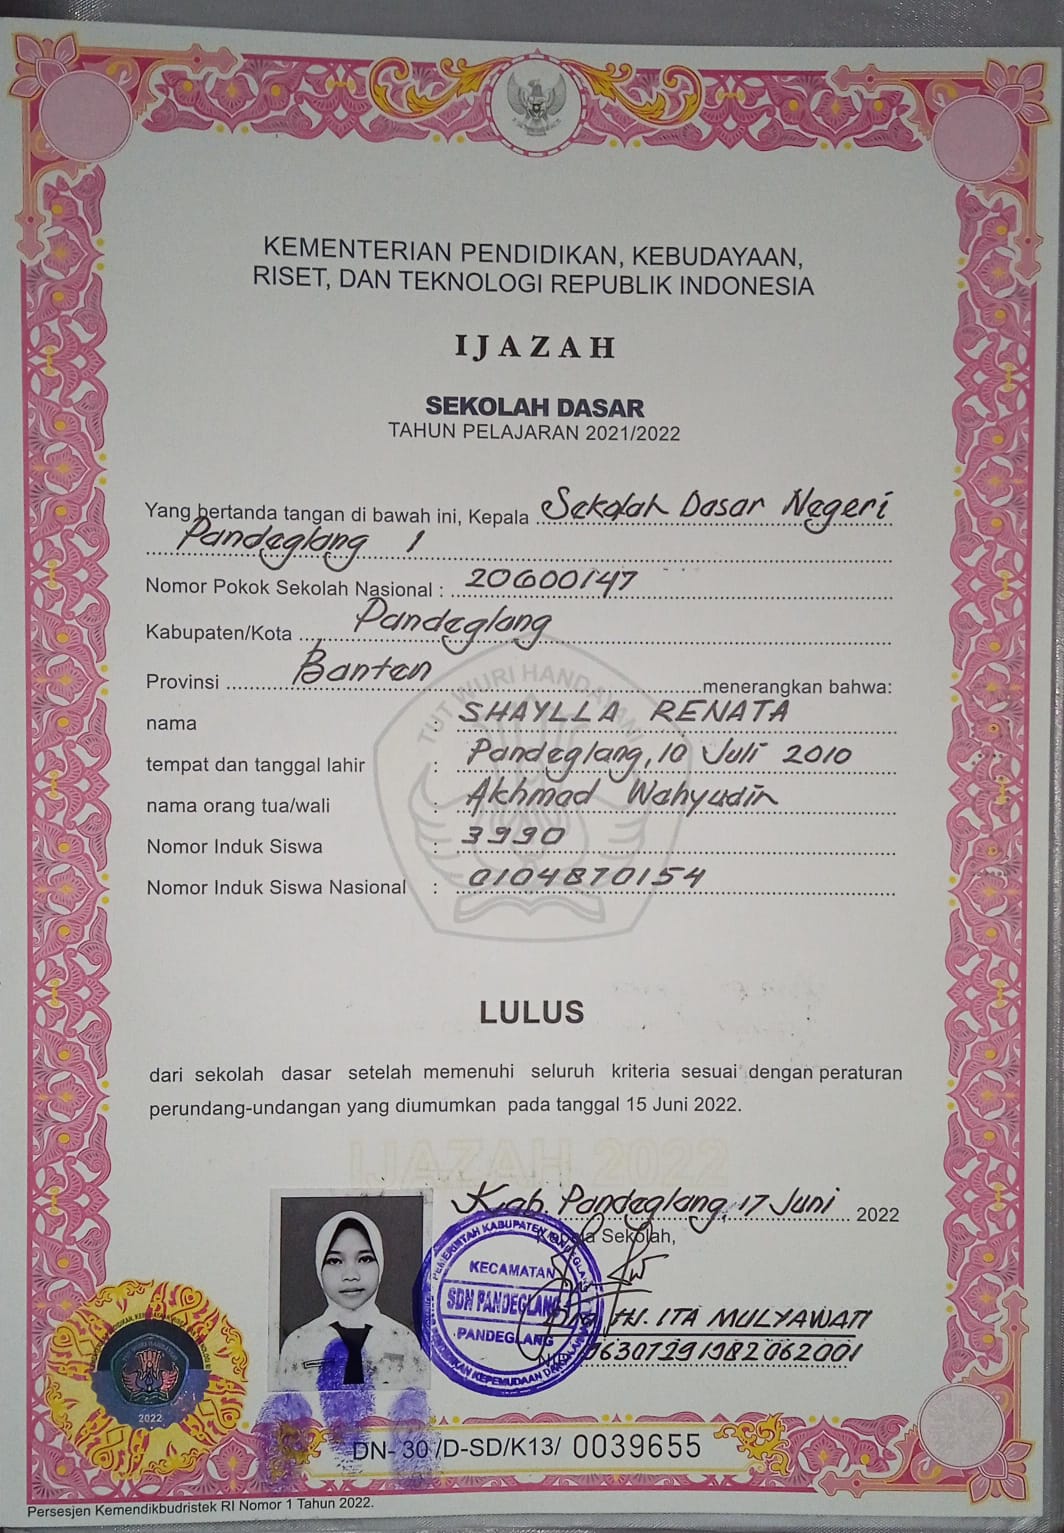 KEMENTERIAN PENDIDIKAN, KEBUDAYAAN,
RISET, DAN TEKNOLOGI REPUBLIK INDONESIA
IJAZAH
SEKOLAH DASAR
TAHUN PELAJARAN 2021/2022
Yang bertanda tangan di bawah ini, Kepala Sekolah Dasar Negeri
Pandeglang 1
Nomor Pokok Sekolah Nasional : 20600147
Kabupaten/Kota Pandeglang
Provinsi Banten menerangkan bahwa:
TUT WURI HANDAYANI
nama : SHAYLLA RENATA
tempat dan tanggal lahir : Pandeglang, 10 Juli 2010
nama orang tua/wali : Akhmad Wahyudin
Nomor Induk Siswa : 3990
Nomor Induk Siswa Nasional : 0104870154
LULUS
dari sekolah dasar setelah memenuhi seluruh kriteria sesuai dengan peraturan
perundang-undangan yang diumumkan pada tanggal 15 Juni 2022.
IJAZAH 2022
Kab. Pandeglang, 17 Juni 2022
Kepala Sekolah,
PEMERINTAH KABUPATEN PANDEGLANG
KECAMATAN
SDN PANDEGLANG
PANDEGLANG
HJ. ITA MULYAWATI
196307291982062001
2022
DN- 30 /D-SD/K13/ 0039655
Persesjen Kemendikbudristek RI Nomor 1 Tahun 2022.